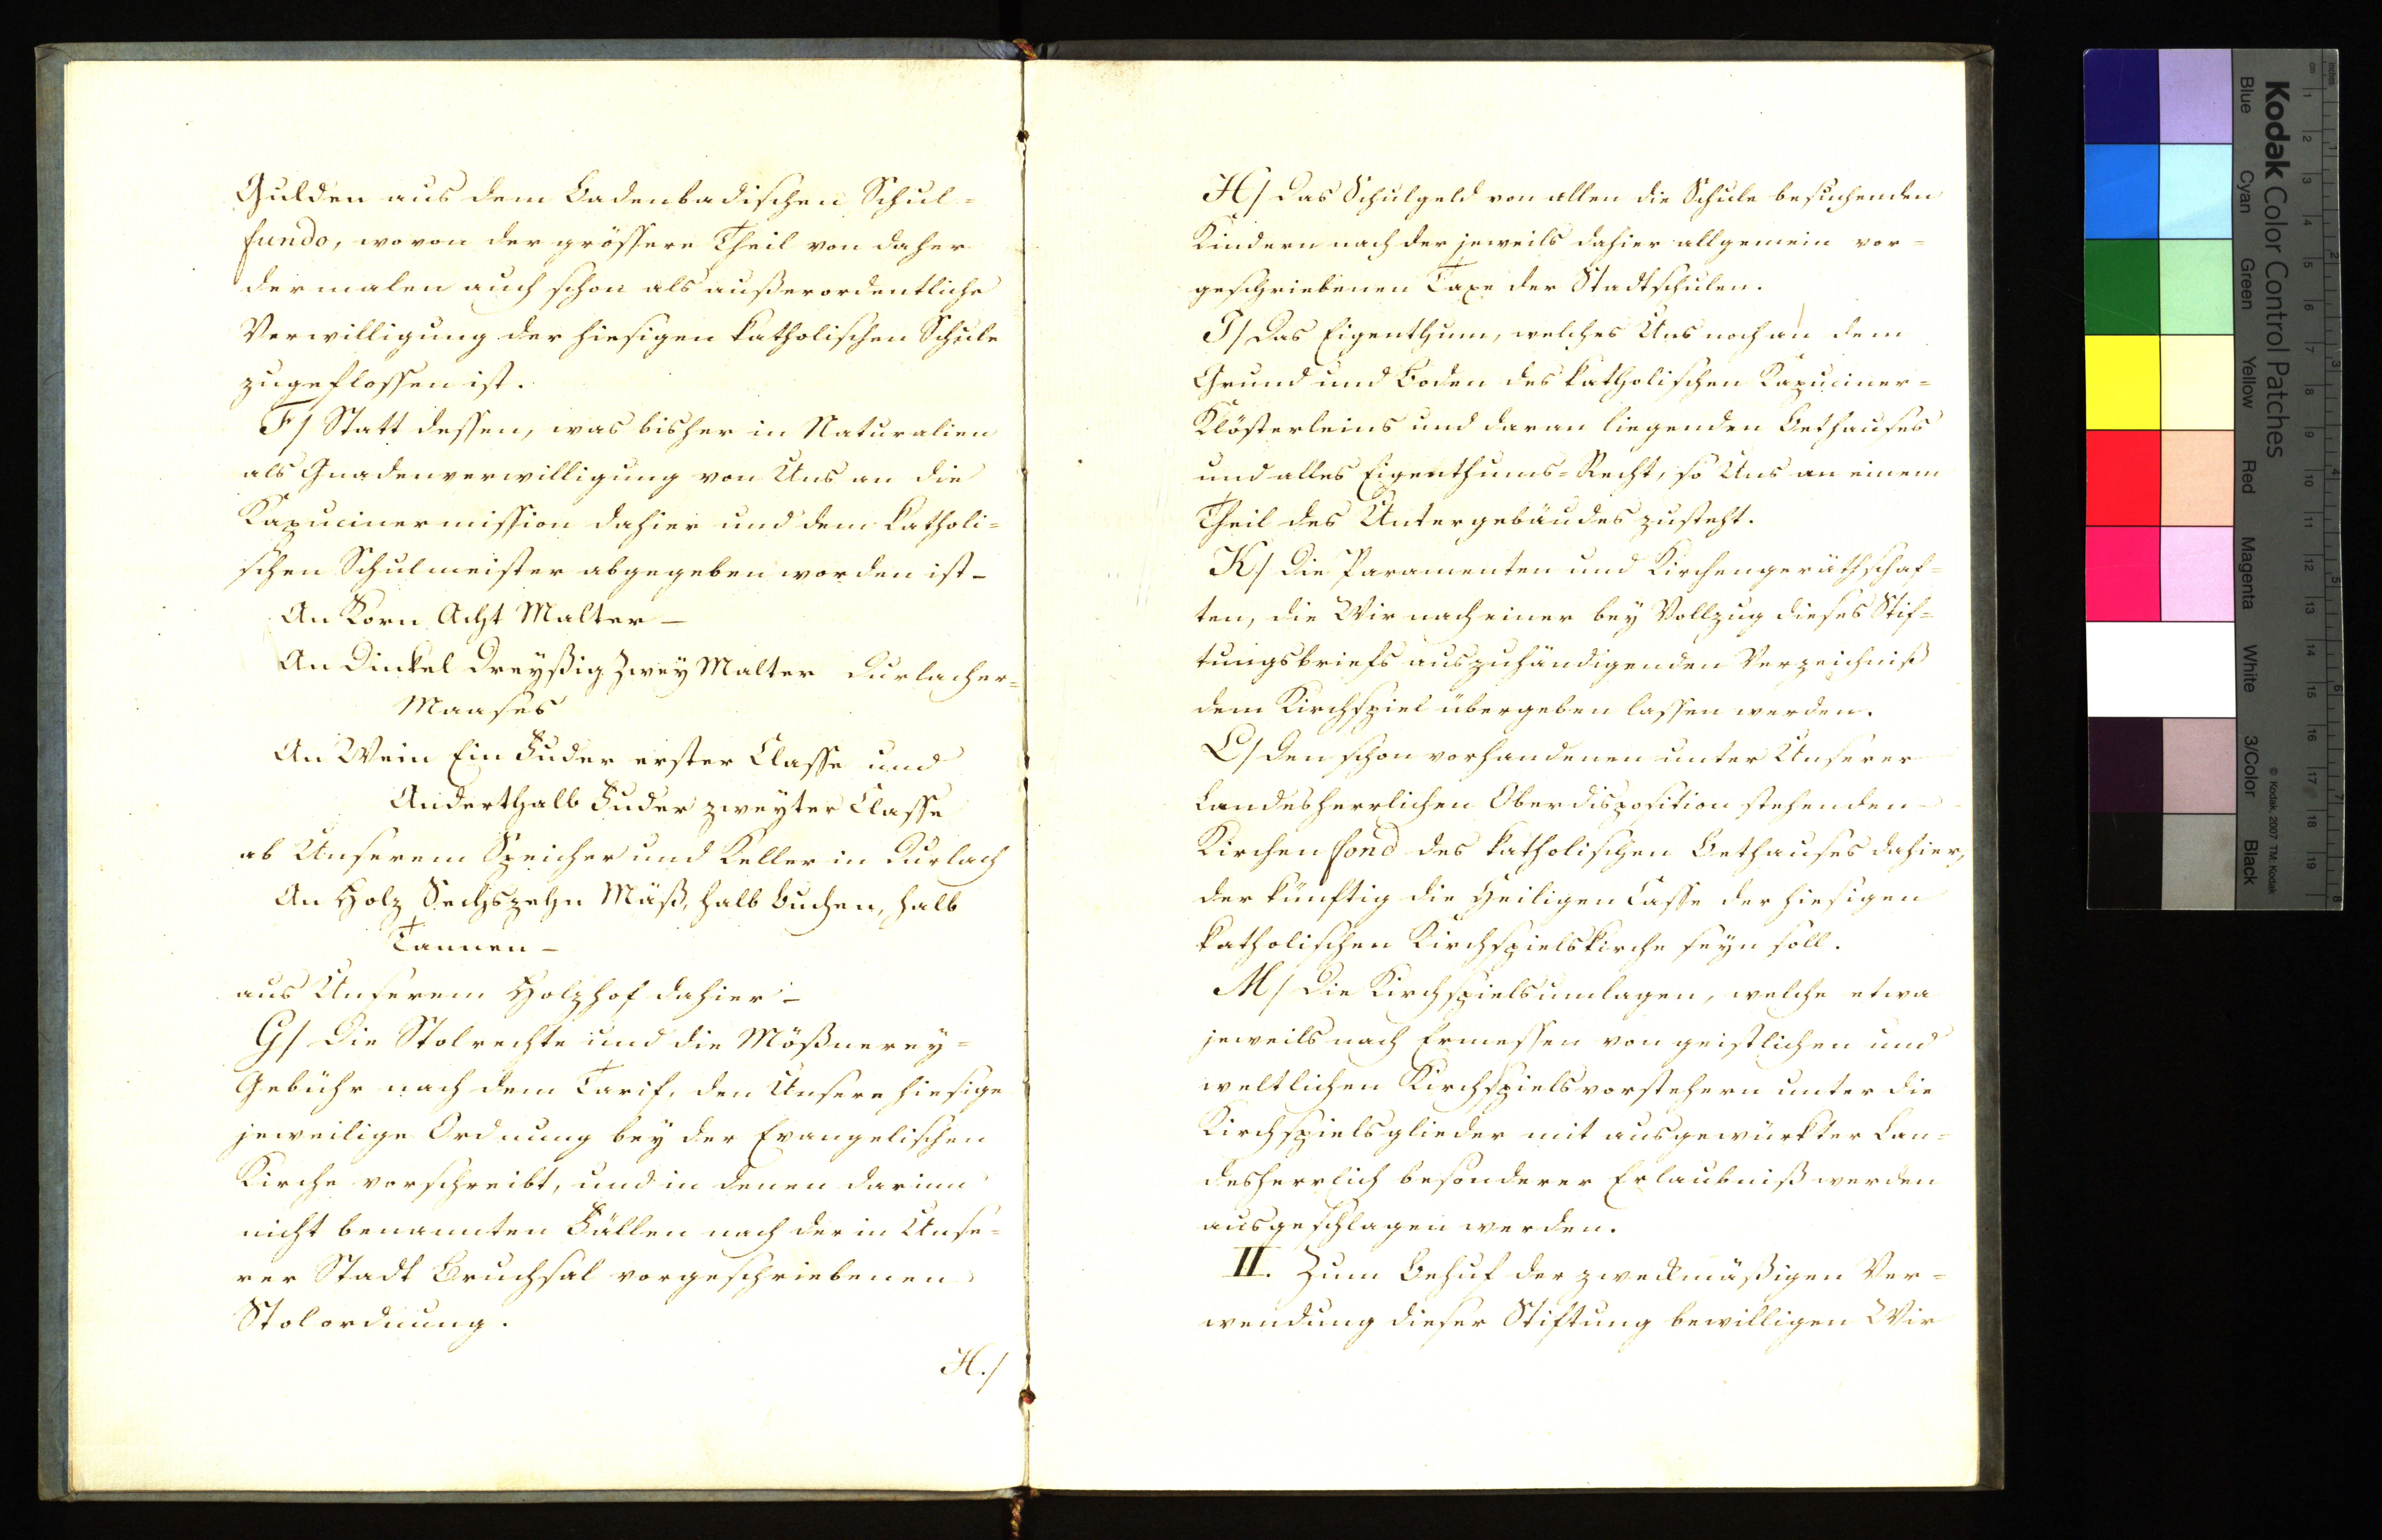 Gulden aus dem Badenbadischen Schul-
fundo, wovon der grössere Theil von daher
dermalen auch schon als außerordentliche
Verwilligung der hiesigen katholischen Schule
zugeflossen ist.
F/ Statt dessen, was bisher in Naturalien
als Gnadenverwilligung von Uns an die
Kapucinermission dahier und dem katholi-
schen Schulmeister abgegeben worden ist –
An Korn Acht Malter –
An Dinkel Dreyßig Zwey Malter Durlacher-
Maases
An Wein Ein Fuder erster Classe und
Anderthalb Fuder zweyter Classe
ab Unserem Speicher und Keller in Durlach
An Holz Sechszehn Mäß, halb buchen, halb
Tannen –
aus Unserem Holzhof dahier –
G/ Die Stolrechte und die Mößnerey-
Gebühr nach dem Tarif, den Unsere hiesige
jeweilige Ordnung bey der Evangelischen
Kirche vorschreibt, und in denen darinn
nicht benannten Fällen nach der in Unse-
rer Stadt Bruchsal vorgeschriebenen
Stolordnung.
H./
H/ Das Schulgeld von allen die Schule besuchenden
Kindern nach der jeweils dahier allgemein vor-
geschriebenen Taxe der Stadtschulen.
I/ Das Eigenthum, welches Uns noch an dem
Grund und Boden des katholischen Kapuciner-
Klösterleins und daran liegenden Bethauses
und alles Eigenthums-Recht, so Uns an einem
Theil des Untergebäudes zusteht.
K/ Die Paramenten und Kirchengeräthschaf-
ten, die Wir nach einer bey Vollzug dieses Stif-
tungsbriefs auszuhändigenden Verzeichniß
dem Kirchspiel übergeben lassen werden.
L/ Den schon vorhandenen unter Unserer
Landesherrlichen Oberdisposition stehenden
Kirchenfond des katholischen Bethauses dahier,
der künftig die Heiligen Casse der hiesigen
katholischen Kirchspielskirche seyn soll.
M/ Die Kirchspielsumlagen, welche etwa
jeweils nach Ermessen von geistlichen und
weltlichen Kirchspielsvorstehern unter die
Kirchspielsglieder mit ausgewürkter Lan-
desherrlich besonderer Erlaubniß werden
ausgeschlagen werden.
II. Zum Behuf der zweckmäßigen Ver-
wendung dieser Stiftung bewilligen Wir
Kodak Color Control Patches
Blue Cyan Green Yellow Red Magenta White 3/Color Black
© Kodak, 2007 TM: Kodak
inches 1 2 3 4 5 6 7 8
cm 1 2 3 4 5 6 7 8 9 10 11 12 13 14 15 16 17 18 19